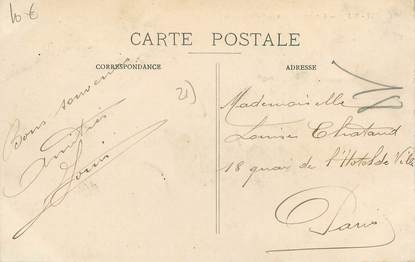 10 €
CARTE POSTALE
CORRESPONDANCE
ADRESSE
21)
Bons souvenirs
Amitiés
Louis
Mademoiselle
Louise Chataud
18 quai de l'Hotel de Ville
Paris